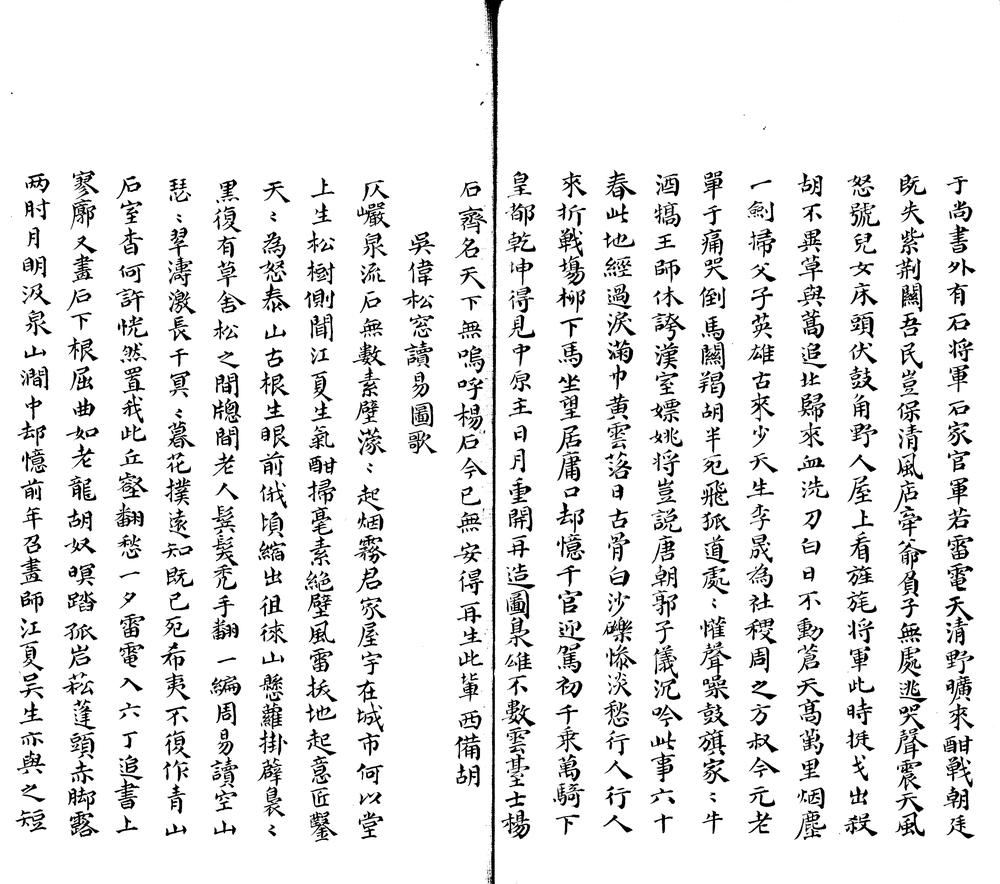 于尚書外有石将軍石家官軍若雷電天清野曠來酣戰朝廷
既失紫荆關吾民豈保清風店牵爺負子無處逃哭聲震天風
怒號兒女床頭伏鼓角野人屋上看旌旄将軍此時挺戈出殺
胡不異草與蒿追北歸來血洗刀白日不動蒼天髙萬里烟塵
一劍掃父子英雄古來少天生李晟為社稷周之方叔今元老
單于痛哭倒馬關羯胡半死飛狐道處〻懽聲噪鼓旗家〻牛
酒犒王師休誇漢室嫖姚将豈説唐朝郭子儀沉吟此事六十
春此地經過淚滿巾黄雲落日古骨白沙礫惨淡愁行人行人
來折戰塲柳下馬坐望居庸口却憶千官迎駕初千乗萬騎下
皇都乾坤得見中原主日月重開再造圖梟雄不數雲臺士楊
石齊名天下無嗚呼楊石今已無安得再生此軰西備胡
吳偉松窓讀易圖歌
仄巘泉流石無數素壁濛〻起烟霧君家屋宇在城市何以堂
上生松樹側聞江夏生氣酣掃毫素絶壁風雷拔地起意匠鑿
天〻為怒泰山古根生眼前俄頃縮出徂徠山懸蘿掛薜裊〻
黑復有草舍松之間牕間老人鬂髮秃手翻一編周易讀空山
瑟〻翠濤激長干冥〻暮花撲遠知既已死希夷不復作青山
石室杳何許恍然置我此丘壑翻愁一夕雷電入六丁追書上
寥廓又畫石下根屈曲如老龍胡奴暝踏孤岩菘蓬頭赤脚露
两肘月明汲泉山澗中却憶前年召畫師江夏吴生亦與之短